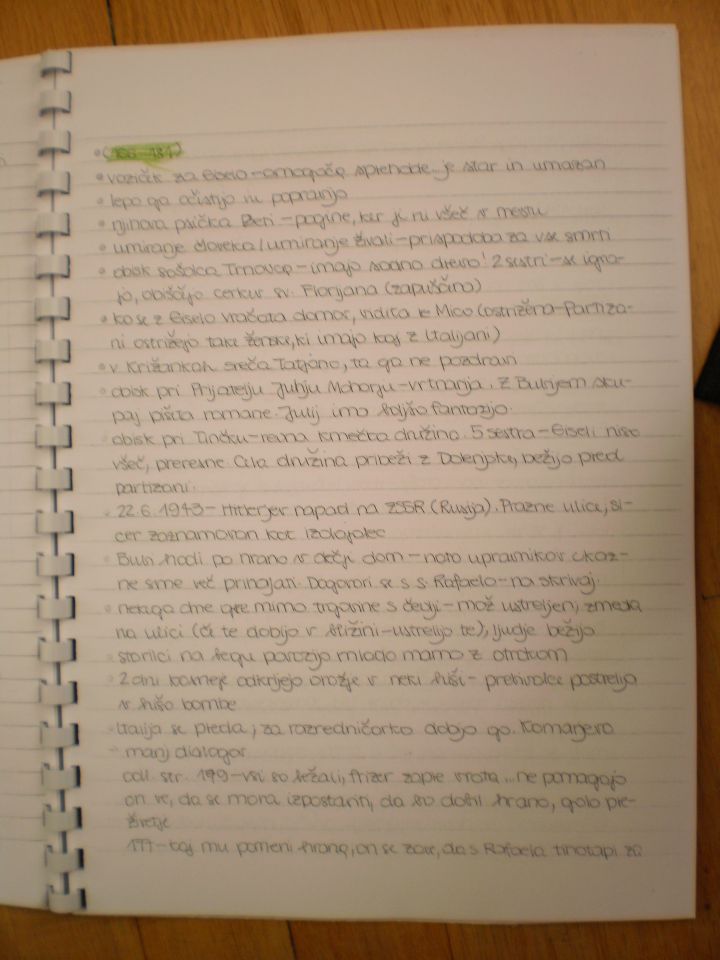 • (166-184)
• voziček za Giselo - omogoča sprehode.. je star in umazan
• lepo ga očistijo in popravijo
• njihova psička Beri - pogine, ker ji ni všeč v mestu
• umiranje človeka / umiranje živali - prispodoba za vse smrti
• obisk sošolca Trnovca - imajo sadno drevo! 2 sestri - se igra-
jo, obiščejo cerkev sv. Florjana (zapuščino)
• ko se z Giselo vračata domov, vidita te Mico (ostrižena - Partiza-
ni ostrižejo take ženske, ki imajo kaj z Italijani)
• v Križankah sreča Tatjano, ta ga ne pozdravi
• obisk pri Prijatelju Juliju Mohorju - vrtnarija. Z Bubijem sku-
paj pišeta romane. Julij ima boljšo fantazijo.
• obisk pri Tinčku - revna kmečka družina. 5 sester - Giseli niso
všeč, preresne. Cela družina pribeži z Dolenjske, bežijo pred
partizani.
• 22.6.1943 - Hitlerjev napad na ZSSR (Rusija). Prazne ulice, si-
cer zaznamovan kot izdajalec
• Bubi hodi po hrano v dečji dom - nato upravnikov ukaz -
ne sme več prihajati. Dogovori se s s. Rafaelo - na skrivaj.
• nekega dne gre mimo trgovine s čevlji - mož ustreljen, zmeda
na ulici (če te dobijo v bližini - ustrelijo te), ljudje bežijo
• storilci na begu porazijo mlado mamo z otrokom
• 2 dni kasneje odkrijejo orožje v neki hiši - prebivalce postrelijo
v hišo bombe
• Italija se preda, za razredničarko dobijo go. Komarjevo
- manj dialogov
odl. str. 179 - vsi so ležali, frizer zapre vrata... ne pomagajo
on ve, da se mora izpostaviti, da bo dobil hrano, golo pre-
živetje
177 - kaj mu pomeni hrana, on se zave, da s Rafaela tihotapi za